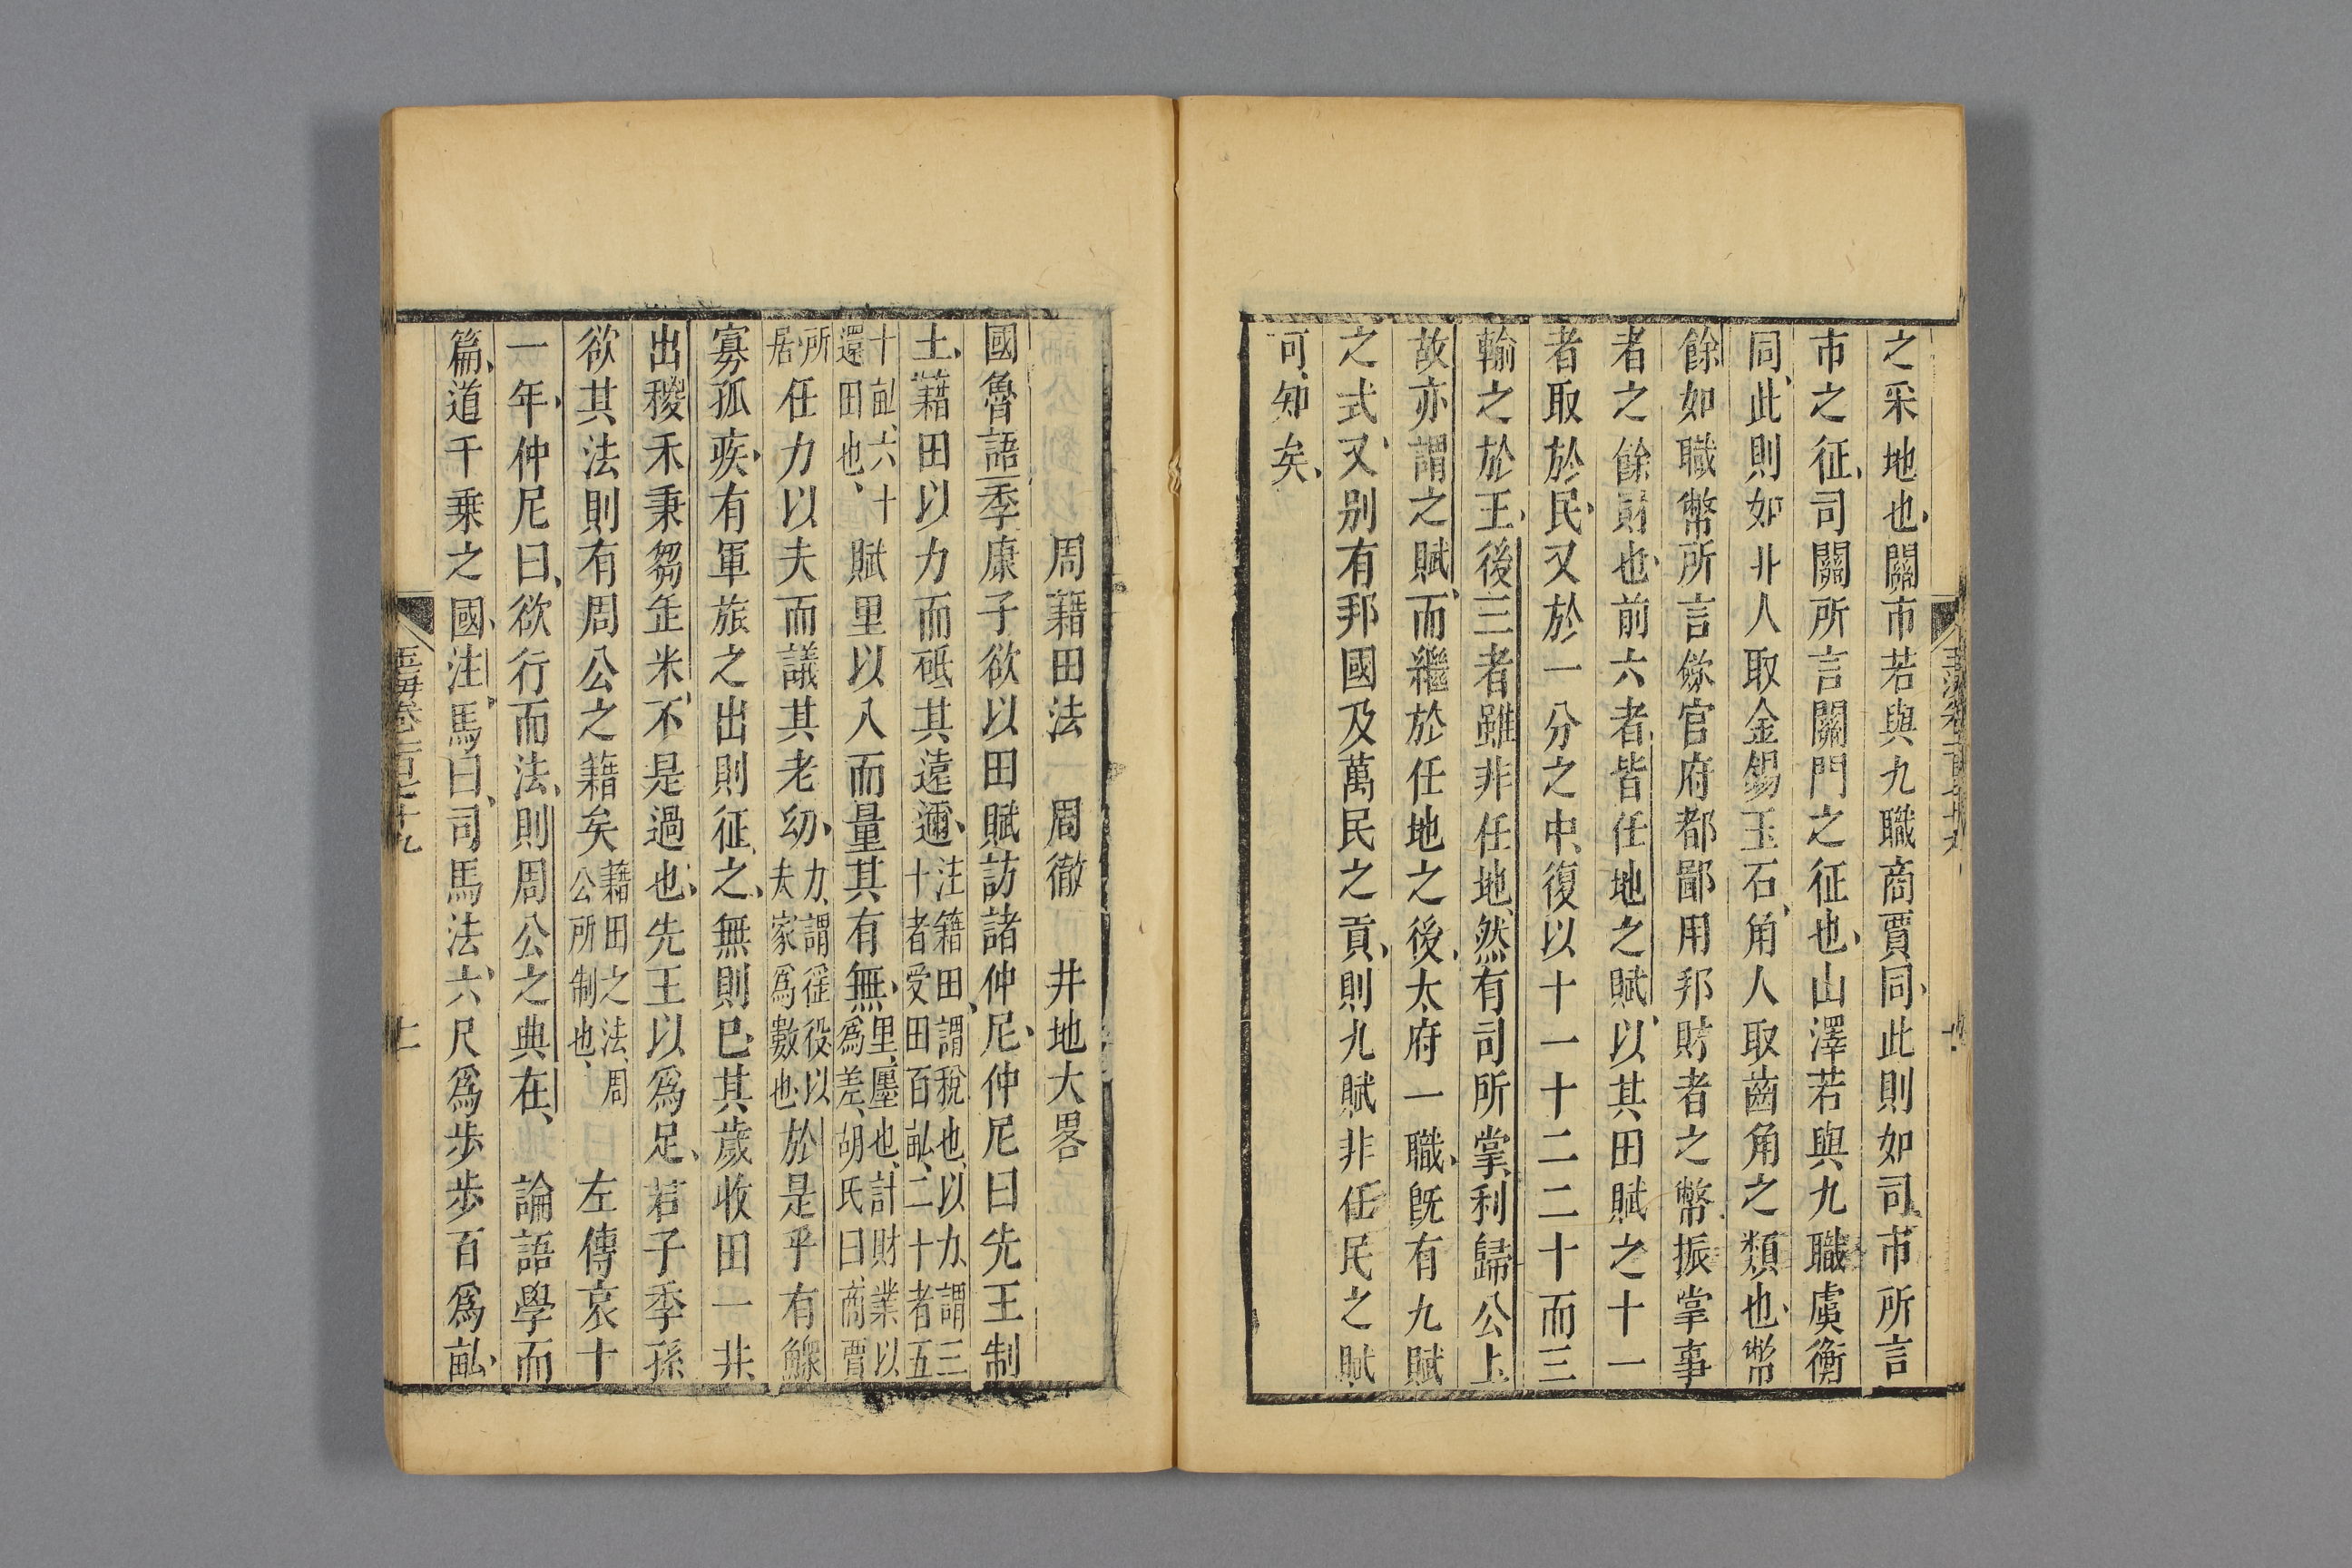 之采地也、關市若與九職商賈同、此則如司市所言
市之征、司關所言關門之征也、山澤若與九職虞衡
同、此則如丱人取金錫玉石、角人取齒角之類也、幣
餘如職幣所言斂官府都鄙用邦財者之幣、振掌事
者之餘財也、前六者皆任地之賦、以其田賦之十一
者取於民、又於一分之中、復以十一十二二十而三
輸之於王、後三者雖非任地、然有司所掌利歸公上
故亦謂之賦、而繼於任地之後、太府一職、旣有九賦
之式、又別有邦國及萬民之貢、則九賦非任民之賦
可知矣、
周藉田法　周徹　井地大畧
國魯語季康子欲以田賦訪諸仲尼、仲尼曰先王制
土、藉田以力而砥其遠邇、注籍田、謂稅也、以力、謂三
十者受田百畝、二十者五
十畝、六十
還田也、賦里以入而量其有無、里、廛也、計財業以
爲差、胡氏曰、商賈
所
居、任力以夫而議其老幼、力、謂徭役、以
夫家爲數也、於是乎有鰥
寡孤疾、有軍旅之出則征之、無則已、其歲收田一井
出稷禾秉芻缶米、不是過也、先王以爲足、若子季孫
欲其法則有周公之藉矣藉田之法、周
公所制也、左傳哀十
一年、仲尼曰、欲行而法、則周公之典在、　論語學而
篇、道千乗之國、注、馬曰、司馬法、六尺爲步步百爲畝、
玉海卷一百七十九